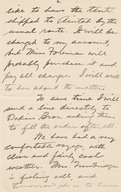 2
like to have the tents
shipped to Amtab by the
usual route. It will be
charged to my account,
but Mrs. Fohman will
probably purchase it and
pay all charges. I will write
to her about the matter.
To save time I will
send a line directly to
Bros. asking them to
fill the order after all.
We have had a very
comfortable voyage, with
clear and fairly cool
weather. Mrs. Trowbridge
is feeling well, and
to have